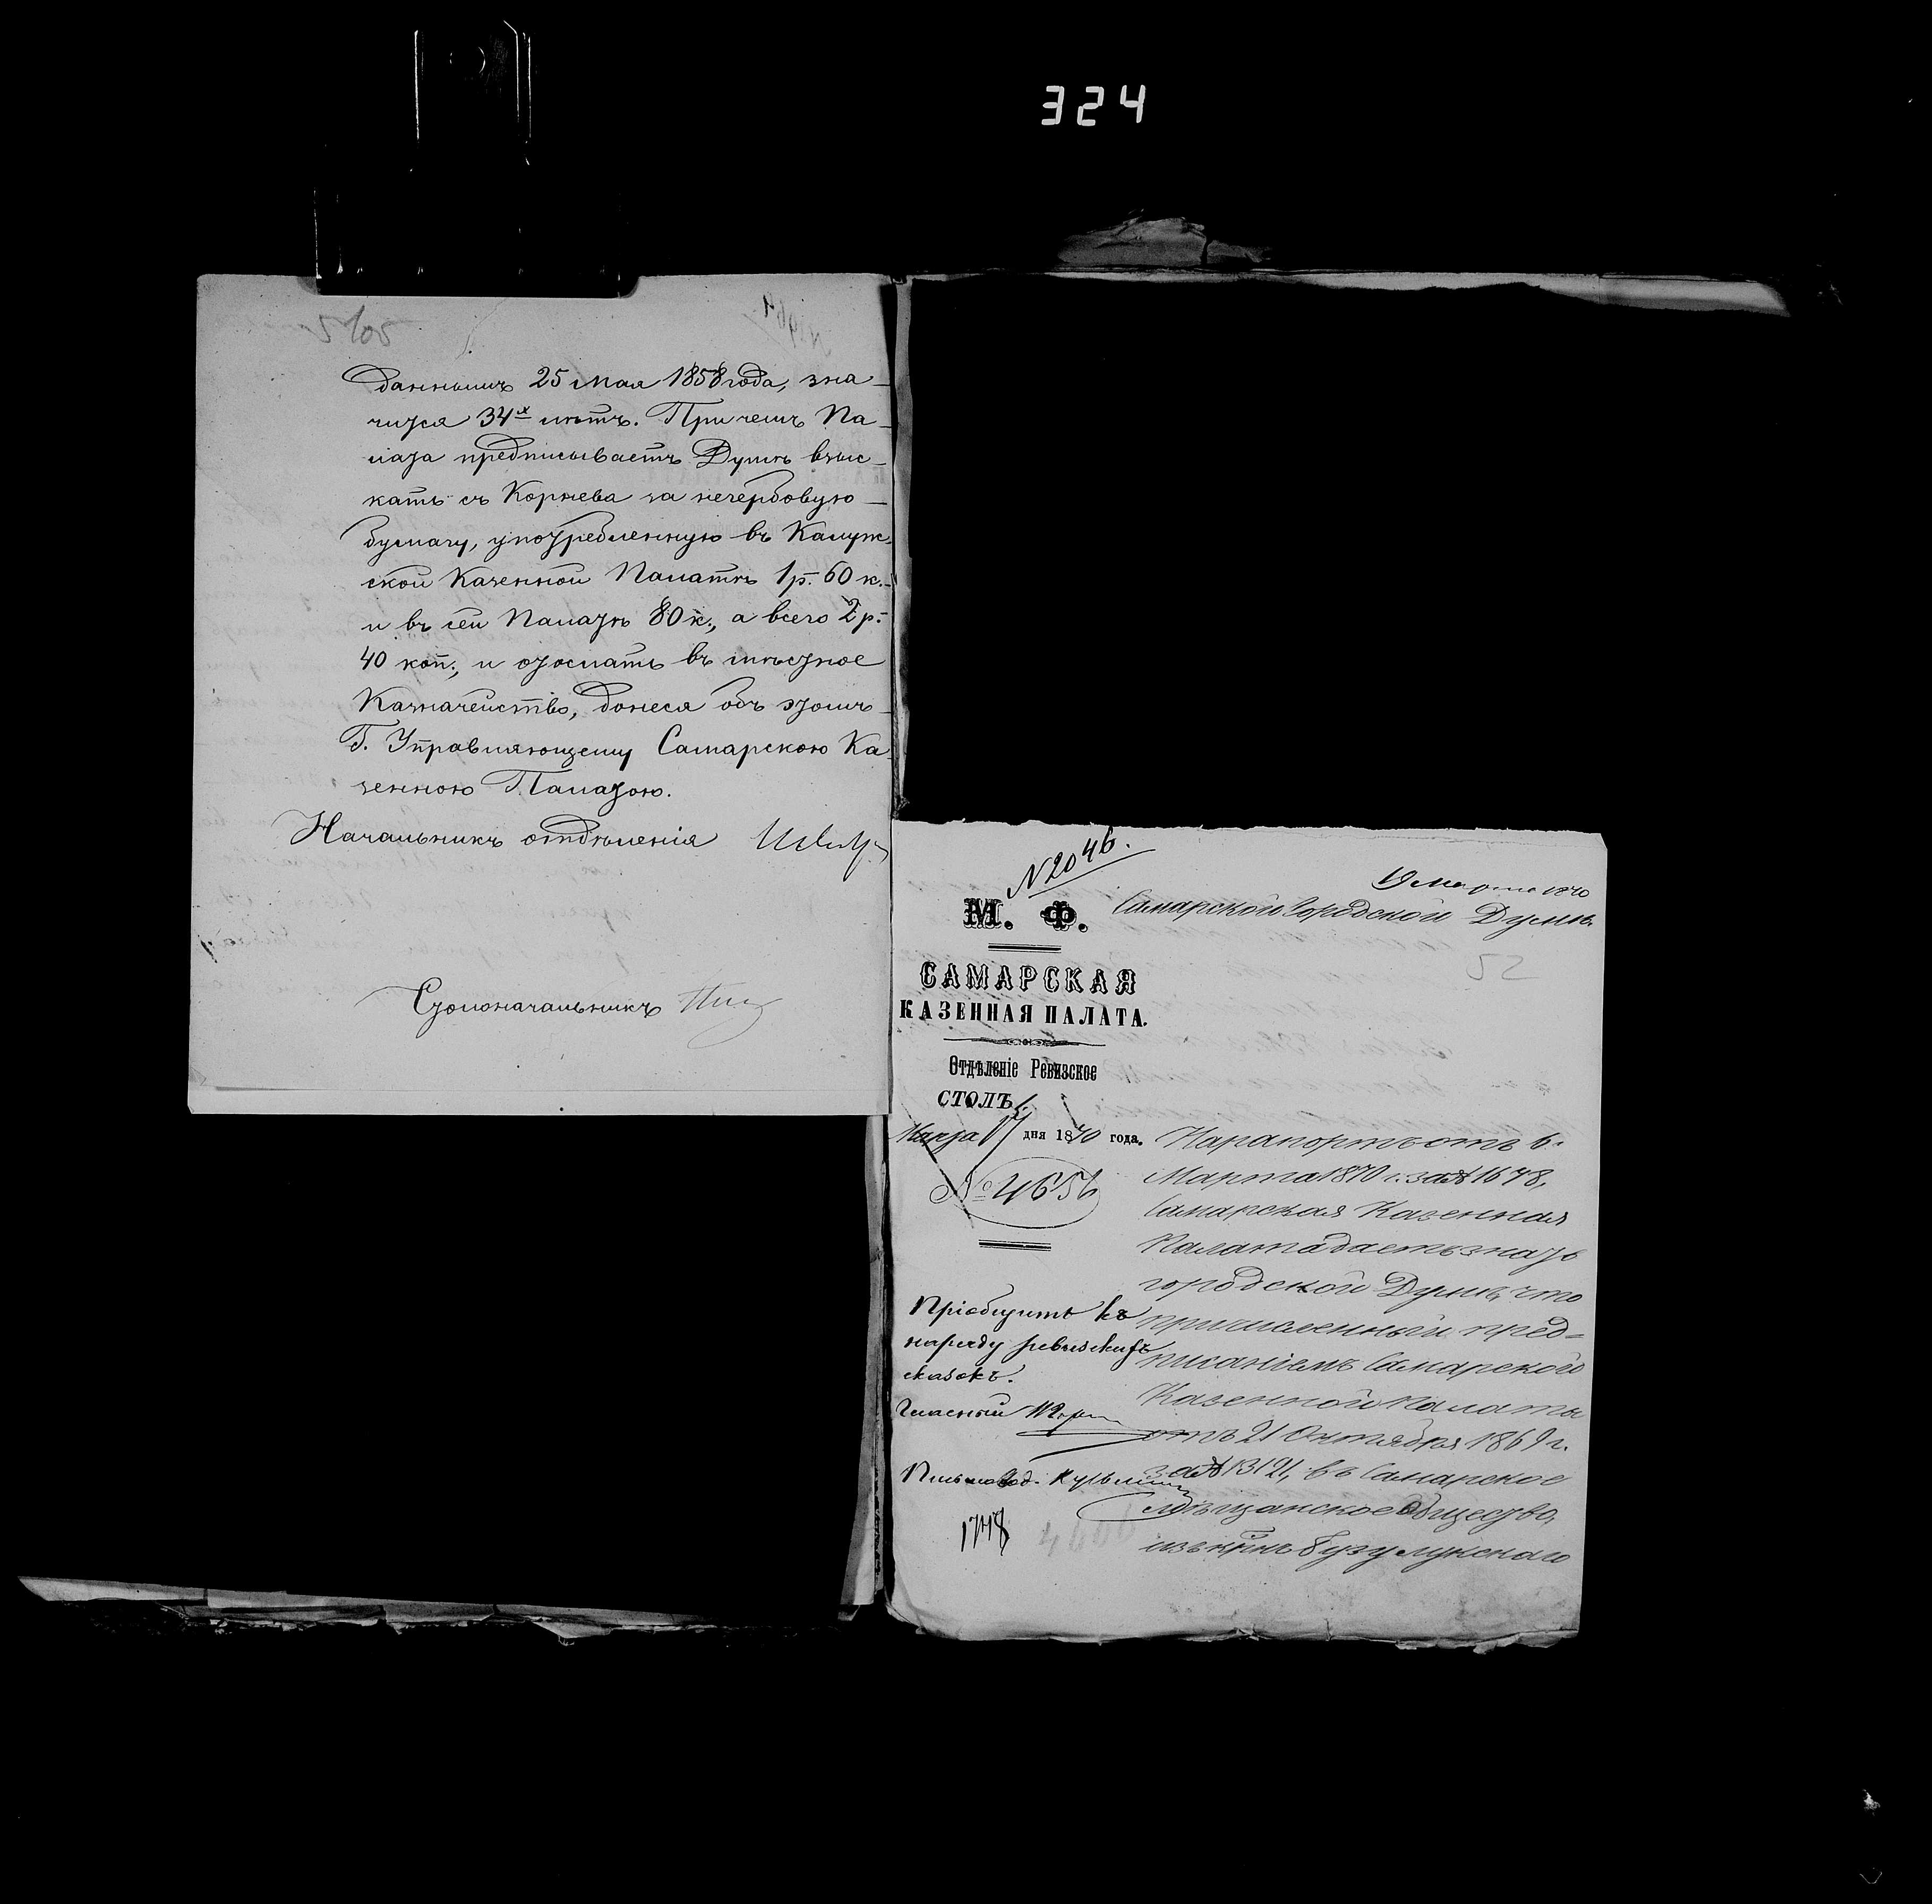 324
5105
даннымъ 25 Мая 1858 года, зна-
чится 34х лѣтъ. При чемъ Па-
лата предписываетъ Думѣ взыс-
кать съ Корнева за негербовую
бумагу, употребленную въ Калуж-
ской Казенной Палатѣ 1 р. 60 к.
и въ сей Палатѣ 80 к., а всего 2 р.
40 коп., и отослать въ мѣстное
Казначейство, донеся объ этомъ
Г. Управляющему Самарскою Ка-
зенною Палатою.
Начальникъ отдѣленія
Столоначальникъ
N 2046.
19 Марта 1870
М. Ф.
Самарской Городской Думѣ.
52
САМАРСКАЯ
КАЗЕННАЯ ПАЛАТА.
Отдѣленіе Ревизское
СТОЛЪ
Марта 17 дня 1870 года.
№ 4656
На рапортъ отъ 6.
Марта 1870 г. за № 1678,
Самарская Казенная
Палата даетъ знать
городской Думѣ, что
причисленный пред-
писаніемъ Самарской
Казенной Палаты
отъ 21 Октября 1869 г.
за № 13121, въ Самарское
мѣщанское общество,
изъ крѣнъ Бузулукскаго
Пріобщить къ
наряду ревизскихъ
сказокъ.
Гласный
Письмовод.
1748